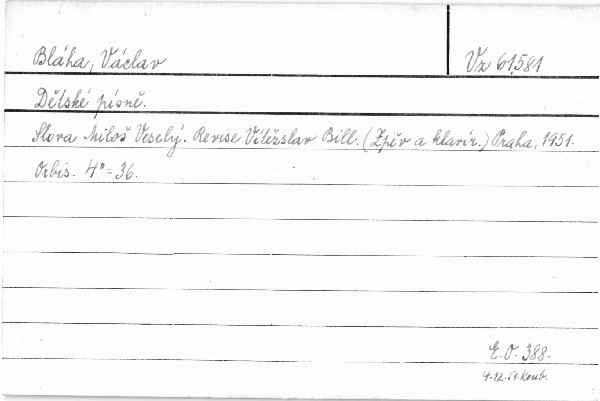 Bláha, Václav
Vz 61.581
Dětské písně.
Slova Miloš Veselý. Revise Vítězslav Bill. (Zpěv a klavír.) Praha, 1951.
Orbis. 4° = 36.
E.O. 388.
4.12.51